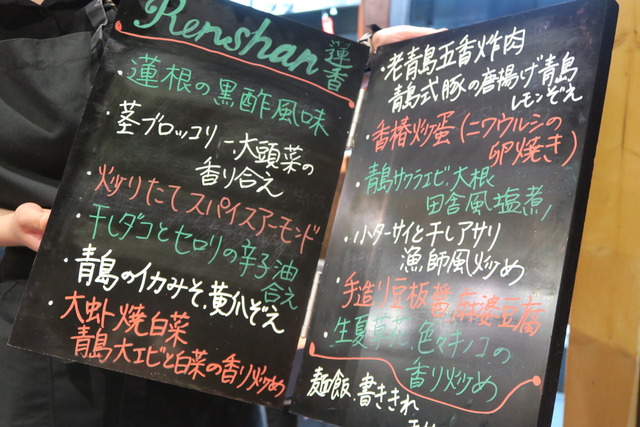 Renshan 蓮香
・蓮根の黒酢風味
・茎ブロッコリー、大頭菜の
香り合え
・炒りたてスパイスアーモンド
・干しダコとセロリの辛子油
合え
・青島のイカみそ、黄瓜ぞえ
・大虾焼白菜
青島大エビと白菜の香り炒め
・老青島五香炸肉
青島式豚の唐揚げ青島
レモンぞえ
・香椿炒蛋(ニワウルシの
卵焼き)
・青島サクラエビ、大根
田舎風塩煮
・小ターサイと干しアサリ
漁師風炒め
・手造り豆板醤麻婆豆腐
・生夏草花、色々キノコの
香り炒め
麺飯、書ききれ